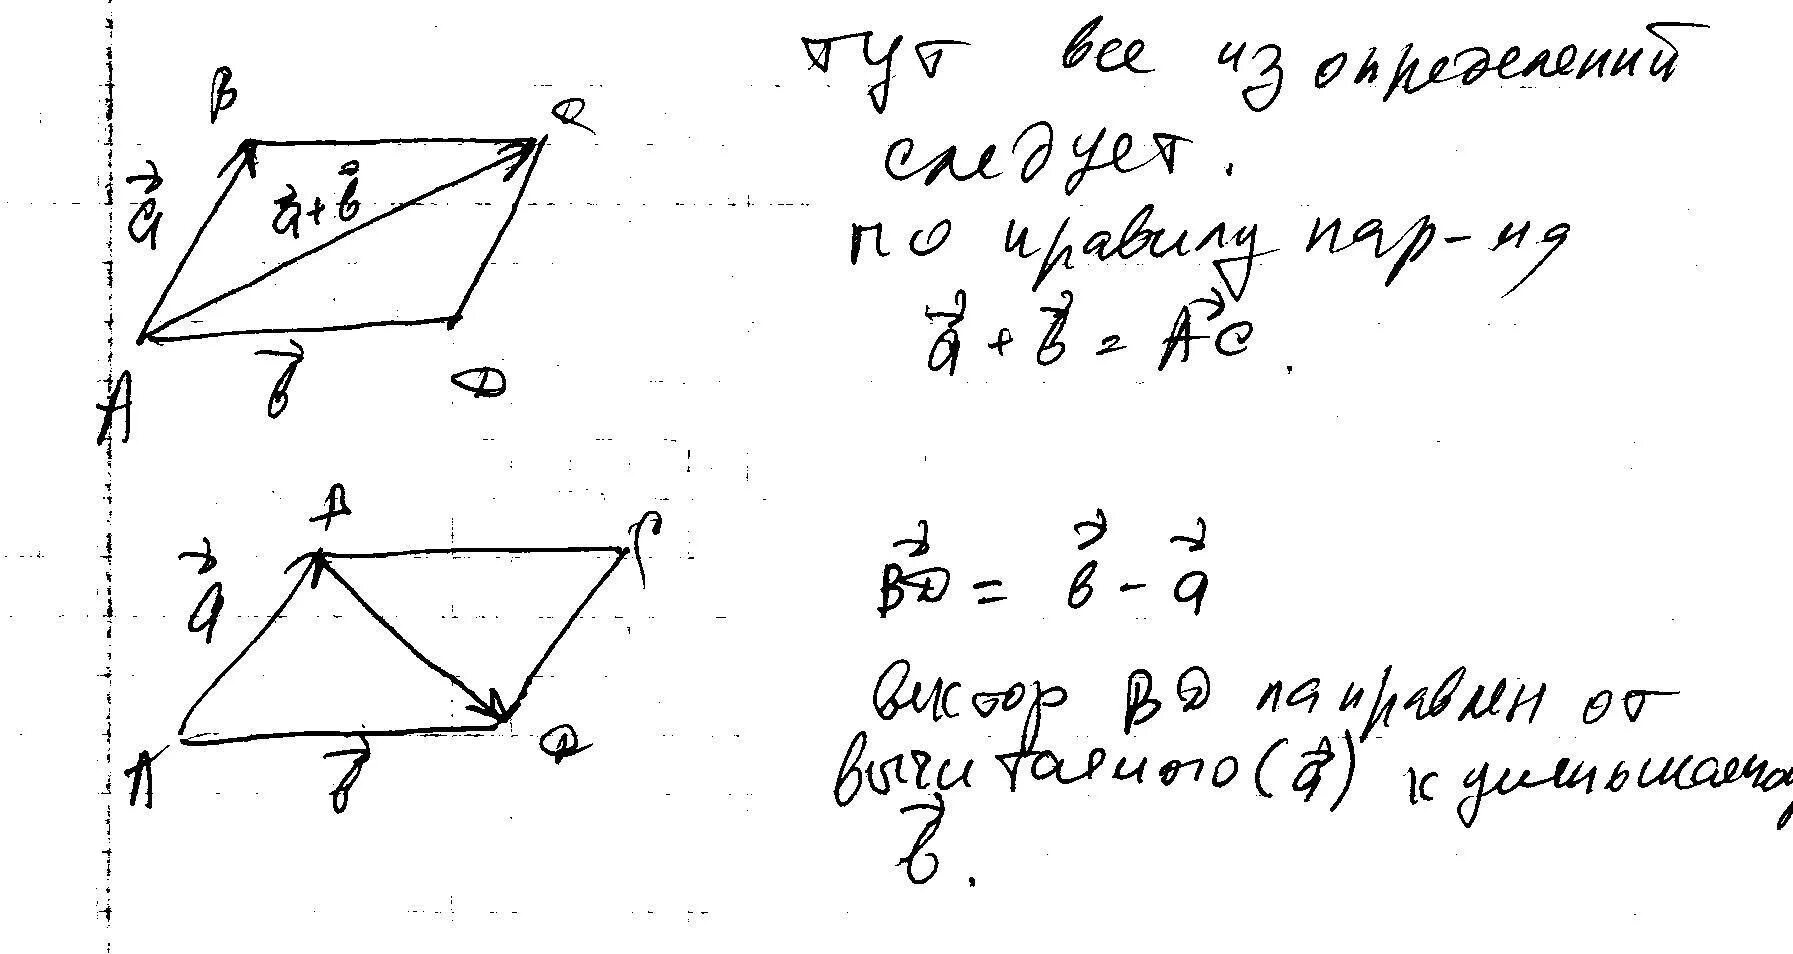 тут все из определений
следует.
по правилу пар-ма
B C
a⃗ a⃗+b⃗
a⃗ + b⃗ = AC⃗.
A b⃗ D
B C
a⃗
BD⃗ = b⃗ - a⃗
A b⃗ D
вектор BD направлен от
вычитаемого (a⃗) к уменьшаемому
b⃗.